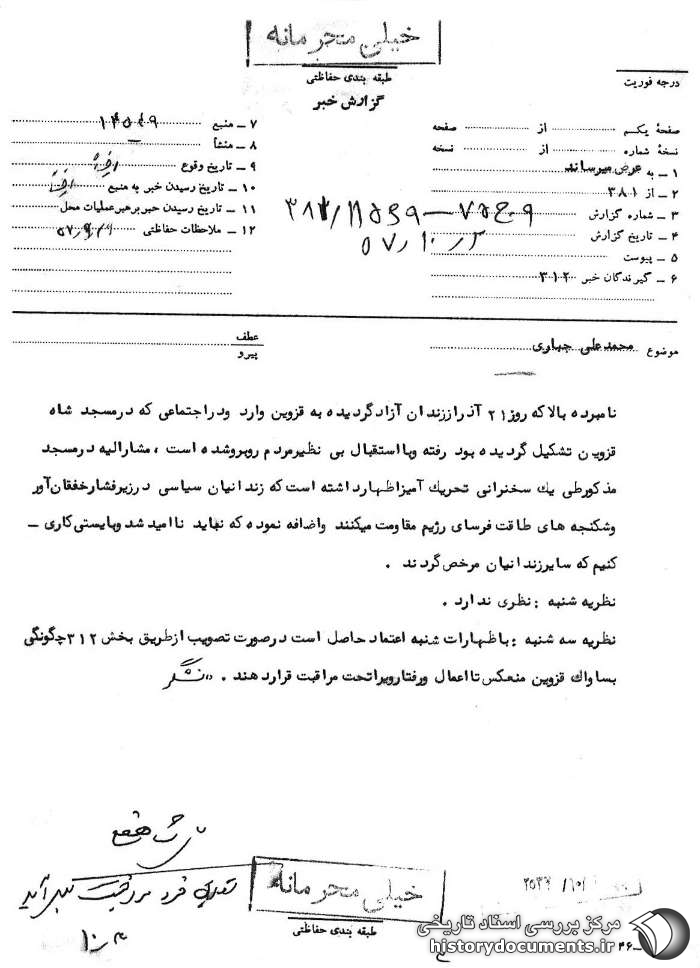 خیلی محرمانه
طبقه بندی حفاظتی
گزارش خبر
درجه فوریت
صفحهٔ یکم از صفحه
نسخهٔ شماره از نسخه
۱ ـ به عرض میرساند
۲ ـ از ۳۸۱
۳ ـ شماره گزارش
۴ ـ تاریخ گزارش
۵ ـ پیوست
۶ ـ گیرندگان خبر ۳۱۲
۷ ـ منبع
۸ ـ منشأ
۹ ـ تاریخ وقوع اخیراً
۱۰ ـ تاریخ رسیدن خبر به منبع اخیراً
۱۱ ـ تاریخ رسیدن خبر برهبر عملیات محل
۱۲ ـ ملاحظات حفاظتی
موضوع محمدعلی جباری
عطف
پیرو
نامبرده بالا که روز ۲۱ آذر از زندان آزاد گردیده به قزوین وارد ودر اجتماعی که درمسجد شاه
قزوین تشکیل گردیده بود رفته وبا استقبال بی نظیر مردم روبرو شده است ، مشارالیه درمسجد
مذکور طی یک سخنرانی تحریک آمیز اظهار داشته است که زندانیان سیاسی درزیر فشار خفقان آور
وشکنجه های طاقت فرسای رژیم مقاومت میکنند واضافه نموده که نباید ناامید شد وبایستی کاری ـ
کنیم که سایر زندانیان مرخص گردند .
نظریه شنبه : نظری ندارد .
نظریه سه شنبه : باظهارات شنبه اعتماد حاصل است درصورت تصویب از طریق بخش ۳۱۲ چگونگی
بساواک قزوین منعکس تا اعمال ورفتار ویرا تحت مراقبت قرار دهند .
خیلی محرمانه
طبقه بندی حفاظتی
مرکز بررسی اسناد تاریخی
historydocuments.ir